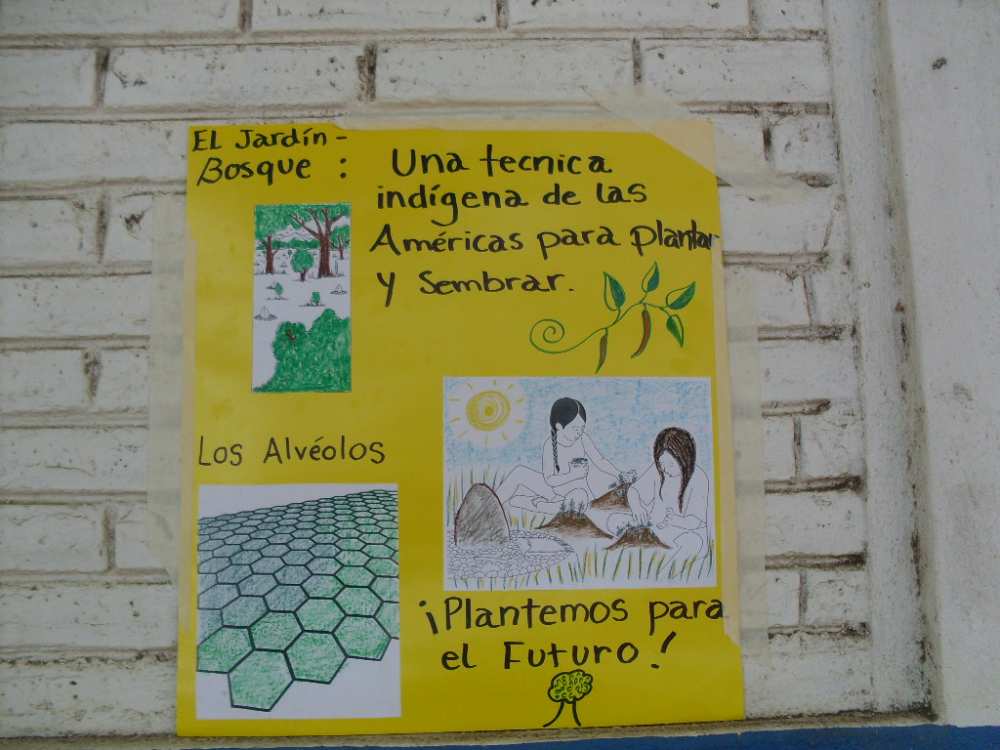 El Jardín -
Bosque :
Una tecnica
indígena de las
Américas para plantar
y sembrar.
Los Alvéolos
¡Plantemos para
el Futuro!